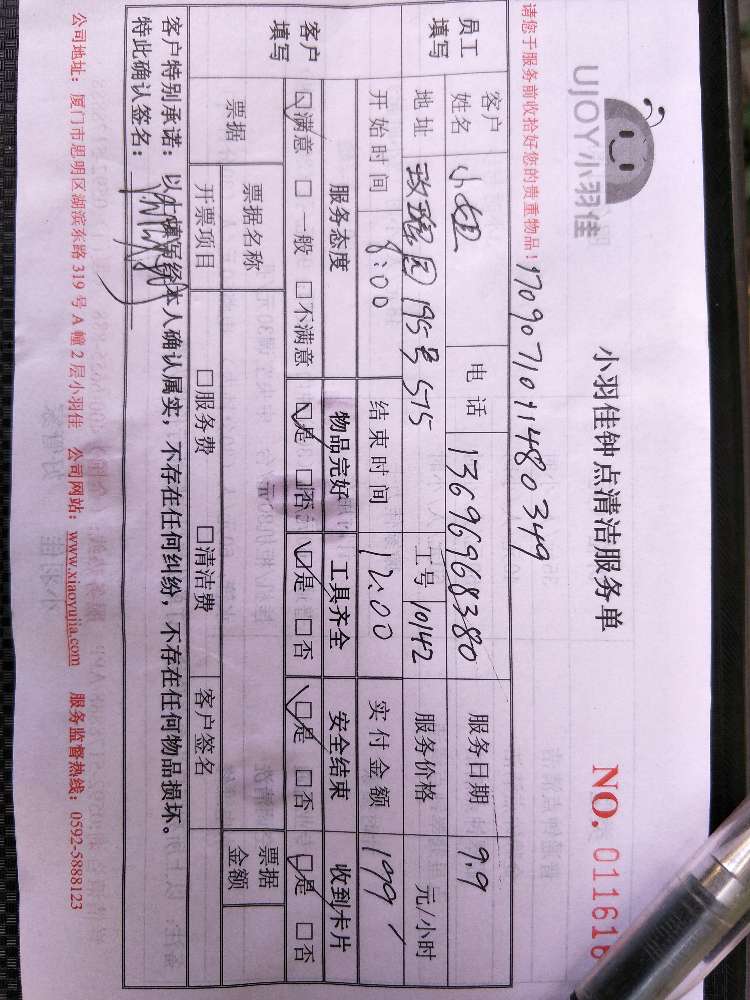 UJOY小羽佳
小羽佳钟点清洁服务单
NO. 011616
请您于服务前收拾好您的贵重物品!
员工填写 客户姓名 小姐 电话 13696968380 服务日期 9.9
地址 玫瑰园195号515 工号 10142 服务价格 元/小时
开始时间 8:00 结束时间 12:00 实付金额 199
客户填写 服务态度 物品完好 工具齐全 安全结束 收到卡片
☑满意 □一般 □不满意 ☑是 □否 ☑是 □否 ☑是 □否 ☑是 □否
票据 票据名称 票据金额
开票项目 □服务费 □清洁费 客户签名
客户特别承诺:以上填写经本人确认属实,不存在任何纠纷,不存在任何物品损坏。
特此确认签名:
公司地址:厦门市思明区湖滨东路319号A幢2层小羽佳 公司网站:www.xiaoyujia.com 服务监督热线:0592-5888123